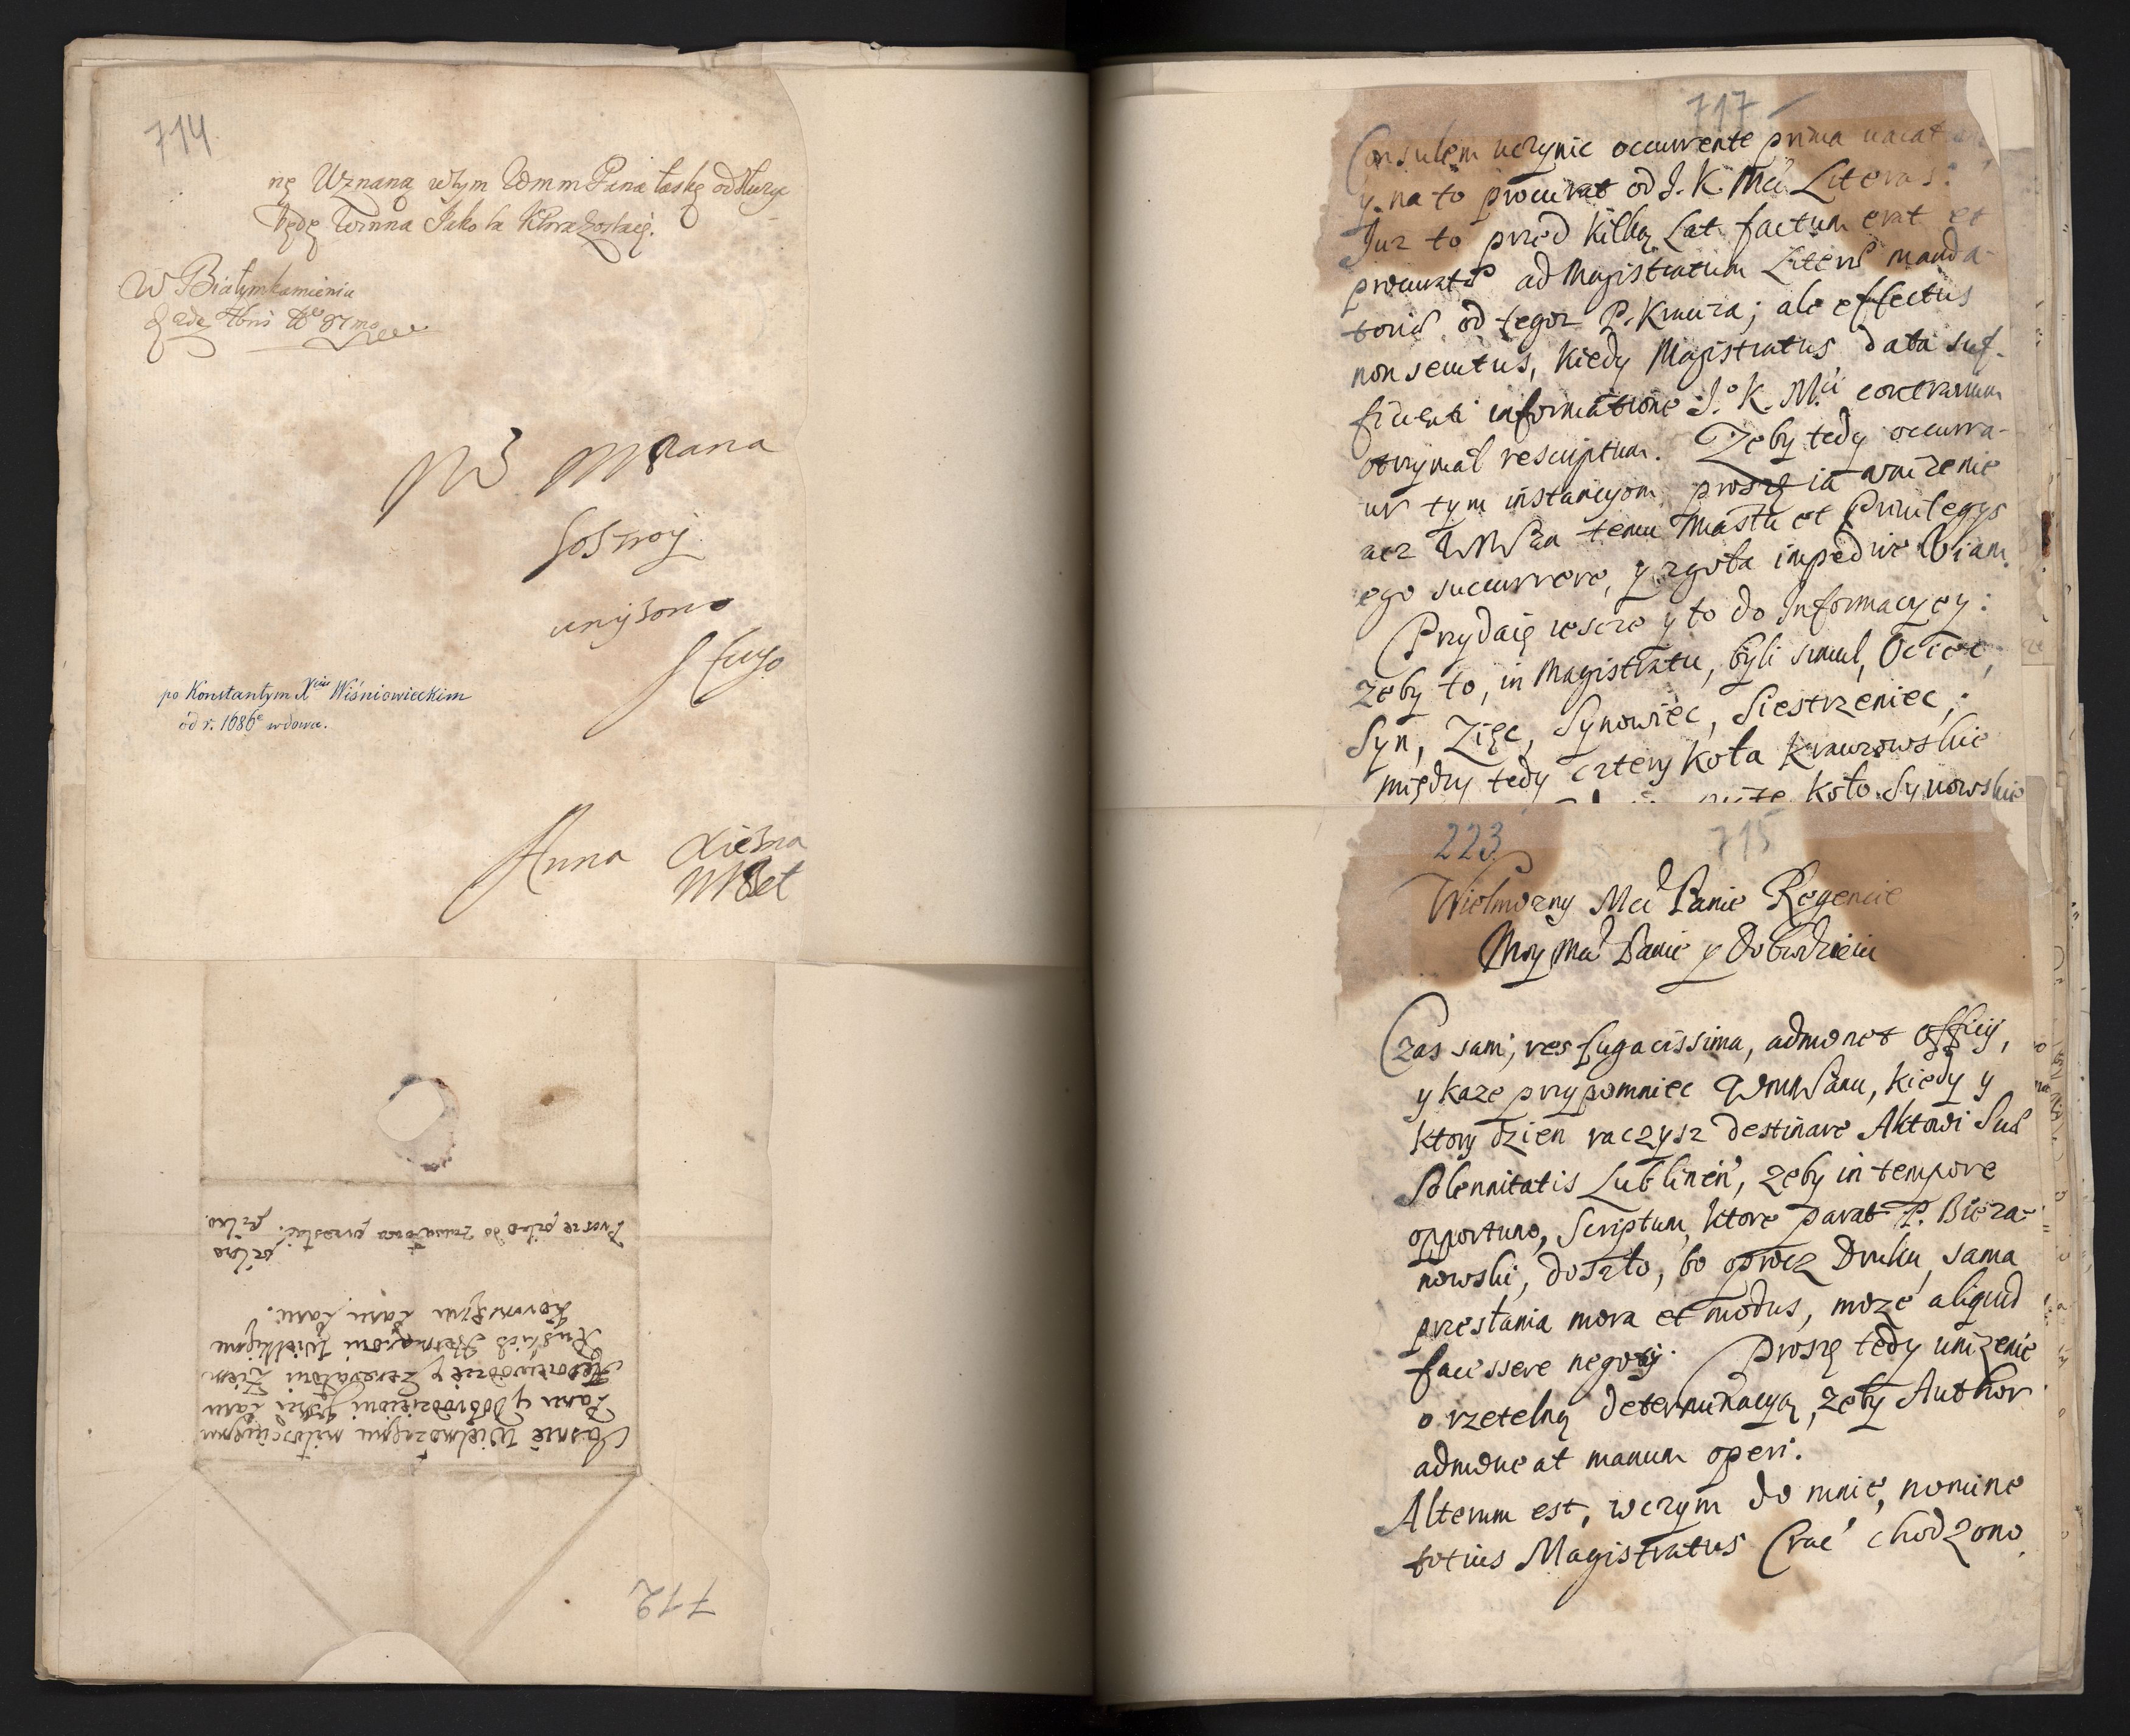 714.
nę Uznaną w tym Wmm Pana łaskę odsłuzyc
będę Winna Jako ta ktora zostaię.
W Białymkamieniu
W M Pana
uniżono
sługo
po Konstantym Xciu Wiśniowieckim
od r. 1686 wdowa.
Anna Xiężna
Jasnie Wielmoznemu miłosciwemu
Panu y Dobrodzieiowi Panu
Ruskich Wielkiemu
Koronnemu Panu Panu.
Proszę pilno do przesłać.
pilno.
712
717
Consulem uczynic occurrente prima
y na to procurat od J. K. Mci Literas:
Juz to przed kilką Lat factum erat et
procuratis ad Magistratum Literis manda-
toriis od tegoz P. Krauza; ale effectus
non secutus, kiedy Magistratus data suf-
ficienti informatione J. K. Mci contrarium
otrzymał rescriptum. Zeby tedy occurra-
tur tym instancyom proszę ia unizenie
racz WMPan temu Miastu et Privilegys
ego succurrere, y zgoła impedire Viam.
Przydaię ieszcze y to do Informacyey:
zeby to, in Magistratu, byli simul, Ociec,
Syn, Zięc, Synowiec, Siestrzeniec;
między tedy cztery koła Krauzowskie
koło Synowskie
223.
715
Wielmozny Mci Panie Regencie
Moy Mci Panie y Dobrodzieiu
Czas sam, res fugacissima, admonet officij,
y kaze przypomniec WMMPanu, kiedy y
ktory dzien raczysz destinare Aktowi Suae
Solennitatis Lublinen, zeby in tempore
opportuno, Scriptum, ktore parat P. Bieza-
nowski, doszło, bo oprocz Druku, sama
przesłania mora et modus, moze aliquid
facessere negotij. Proszę tedy unizenie
o rzetelną determinacyą, zeby Author
admoveat manum operi.
Alterum est, w czym do mnie, nomine
totius Magistratus Crac chodzono